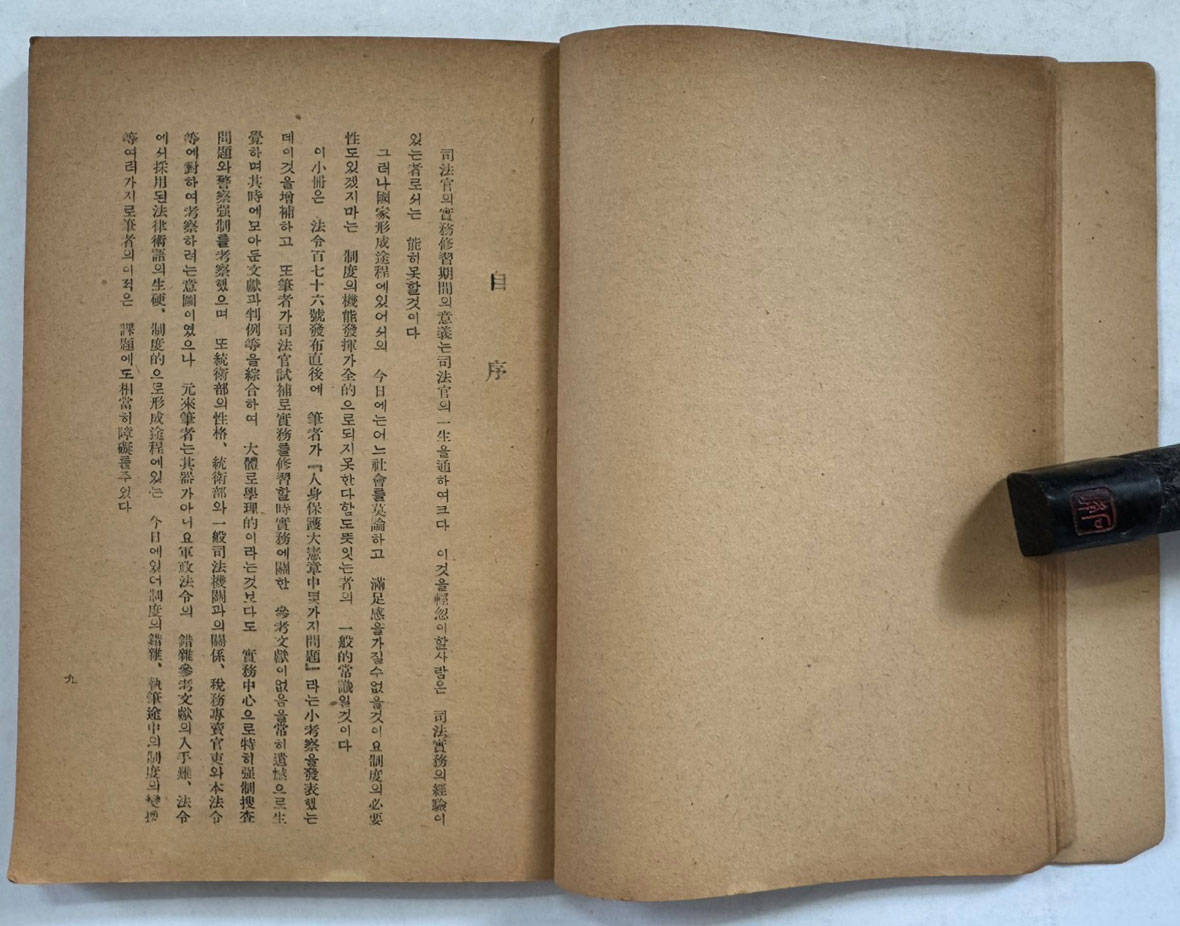 自序
司法官의實務修習期間의意義는司法官의一生을通하여크다 이것을輕忽이할사람은 司法實務의經驗이
있는者로서는 能히못할것이다
그러나國家形成途程에있어서의 今日에는어느社會를莫論하고 滿足感을가질수없을것이요制度의必要
性도있겠지마는 制度의機能發揮가全的으로되지못한다함도뜻잇는者의 一般的常識일것이다
이小冊은 法令百七十六號發布直後에 筆者가『人身保護大憲章中몇가지問題』라는小考察을發表했는
데이것을增補하고 또筆者가司法官試補로實務를修習할時實務에關한 參考文獻이없음을常히遺憾으로生
覺하며其時에모아둔文獻과判例等을綜合하여 大體로學理的이라는것보다도 實務中心으로特히强制搜査
問題와警察强制를考察했으며 또統衛部의性格、統衛部와一般司法機關과의關係、稅務專賣官吏와本法令
等에對하여考察하려는意圖이였으나 元來筆者는其器가아니요軍政法令의 錯雜參考文獻의入手難、法令
에서採用된法律術語의生硬、制度的으로形成途程에있는 今日에있어制度의錯雜、執筆途中의制度의變
等여러가지로筆者의이적은 課題에도相當히障礙를주었다
九